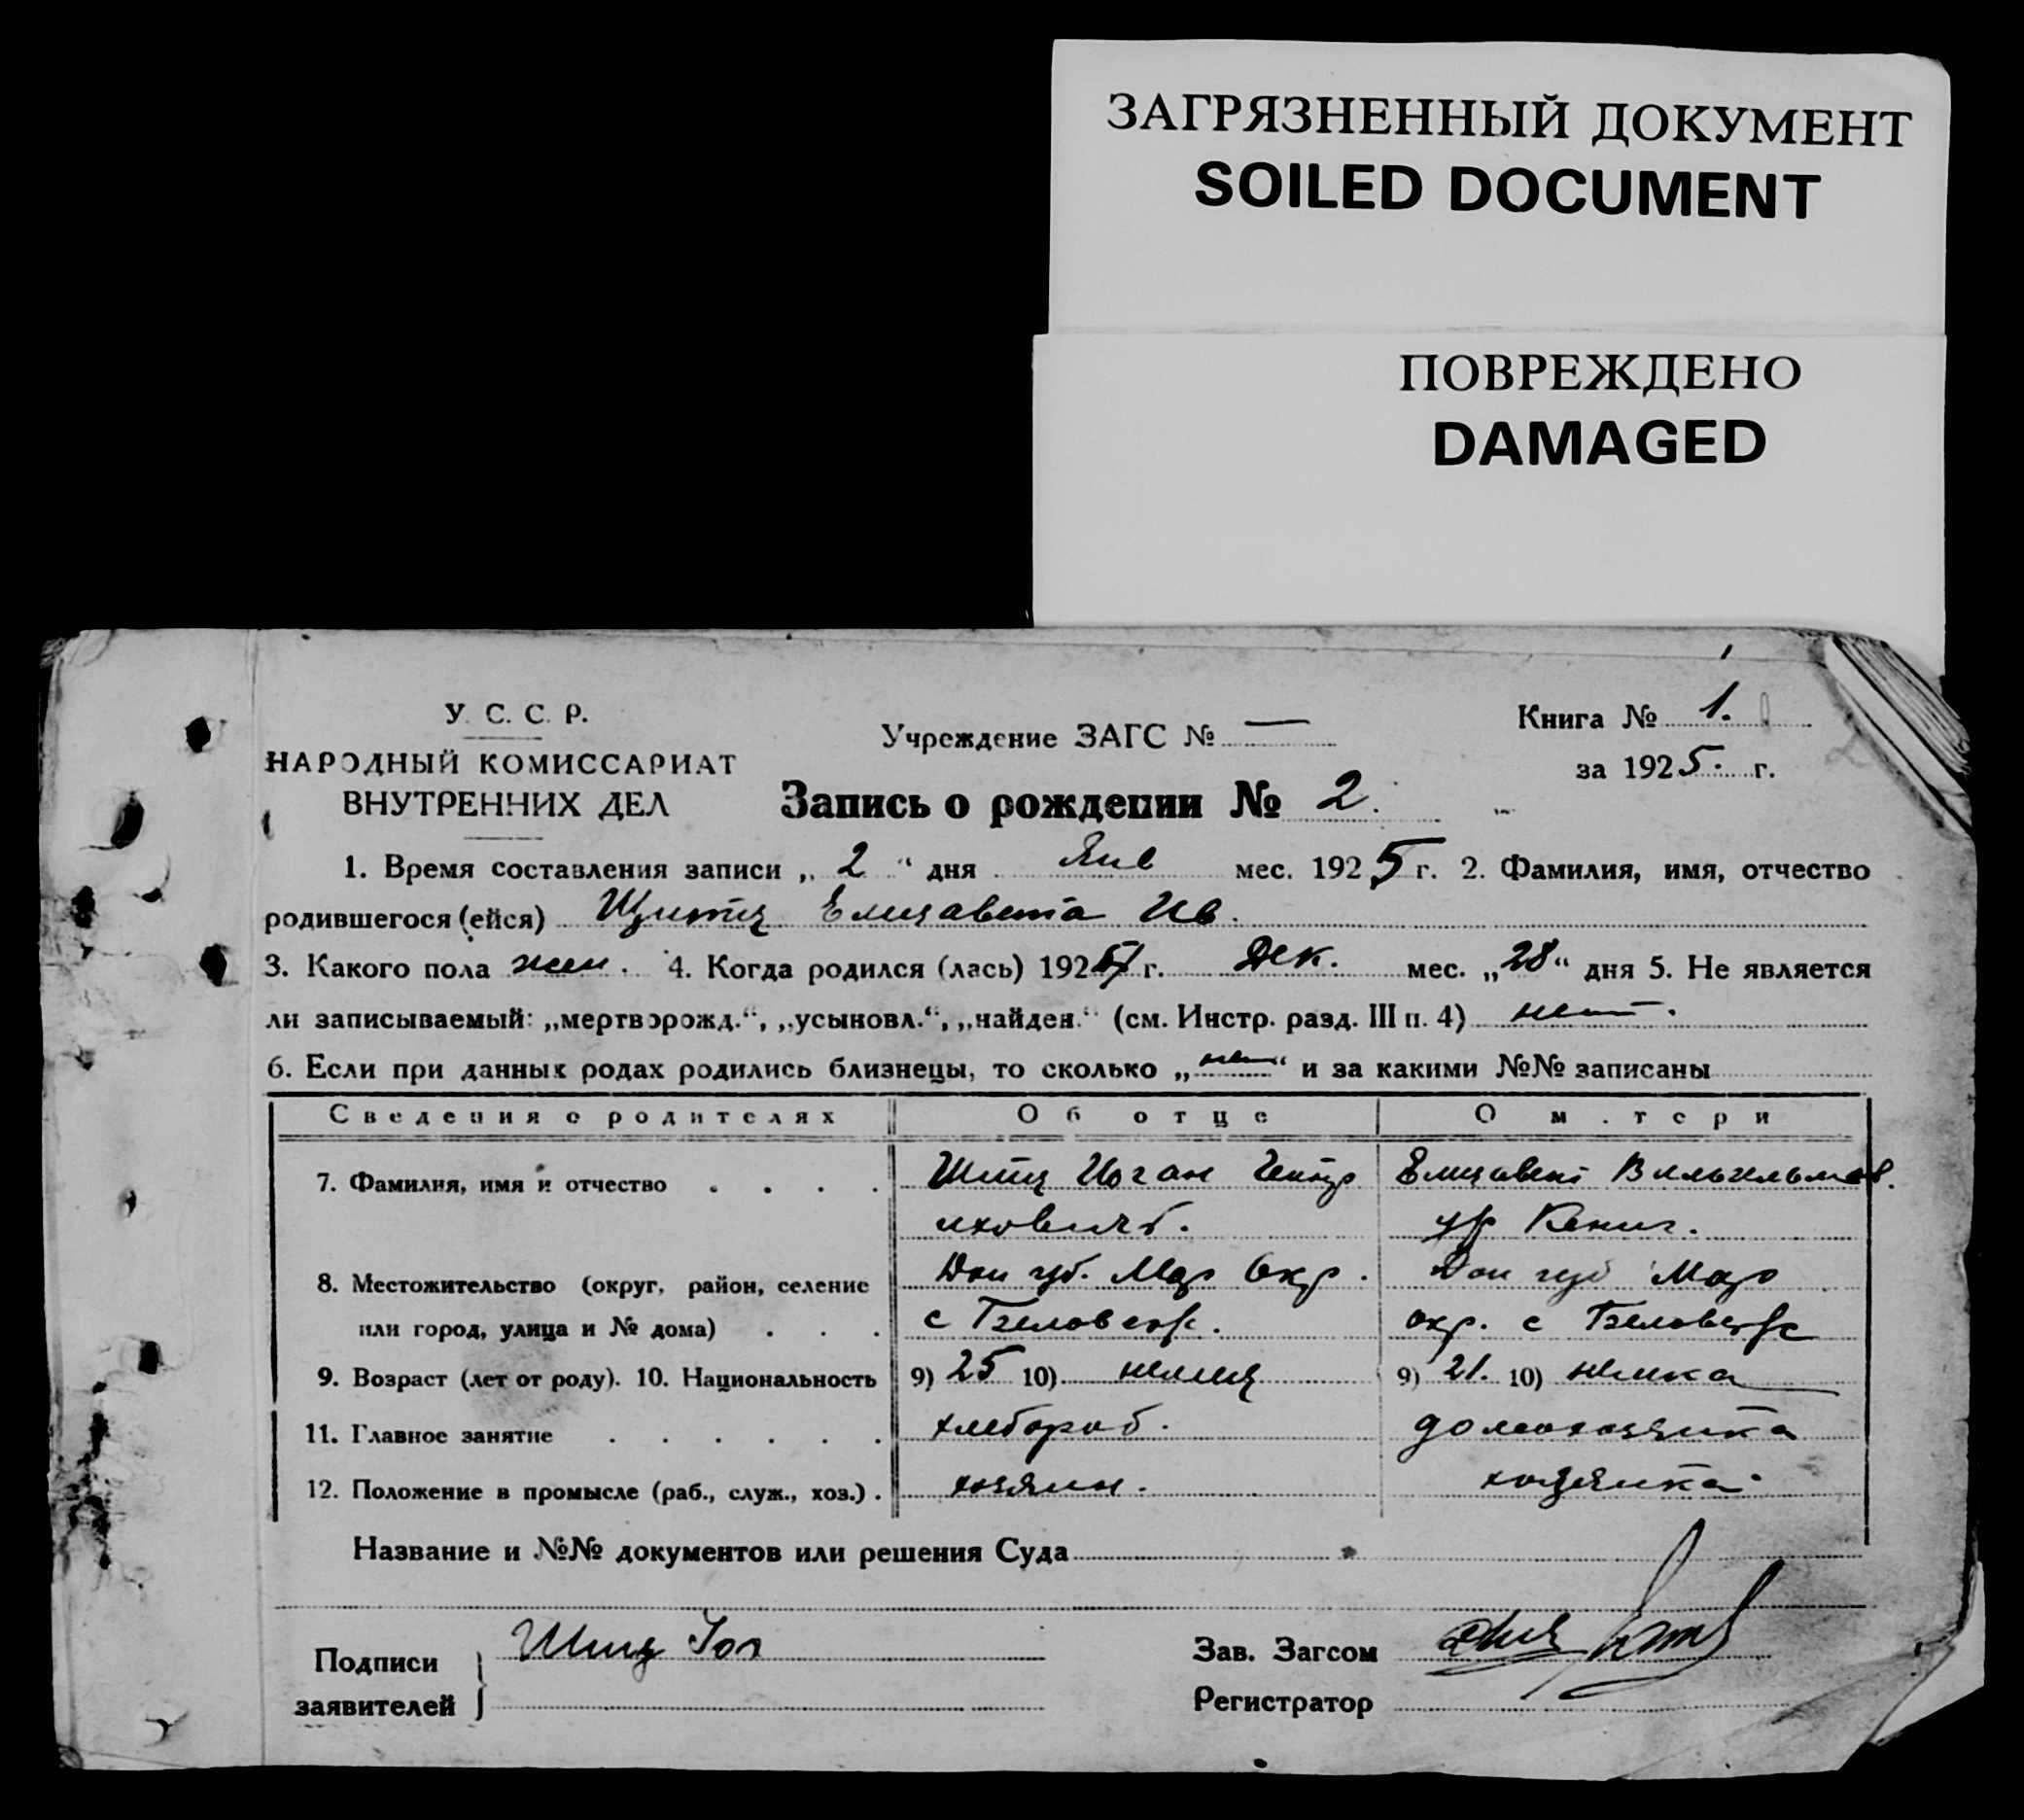 ЗАГРЯЗНЕННЫЙ ДОКУМЕНТ
SOILED DOCUMENT
ПОВРЕЖДЕНО
DAMAGED
У. С. С. Р.
НАРОДНЫЙ КОМИССАРИАТ
ВНУТРЕННИХ ДЕЛ
Учреждение ЗАГС № —
Книга № 1.
за 1925. г.
Запись о рождении № 2.
1. Время составления записи „ 2 “ дня Янв мес. 1925 г. 2. Фамилия, имя, отчество
родившегося (ейся) Елизавета Ив.
3. Какого пола жен. 4. Когда родился (лась) 192 г. Дек. мес. „28“ дня 5. Не является
ли записываемый: „мертворожд.“, „усыновл.“, „найден.“ (см. Инстр. разд. III п. 4) нет.
6. Если при данных родах родились близнецы, то сколько „нет“ и за какими №№ записаны
Сведения о родителях Об отце О м.тери
7. Фамилия, имя и отчество Шитц Иоган Генр Елизавет Вильгельмов.
иховичъ. ур Кениг.
8. Местожительство (округ, район, селение Дон губ. Мар Окр. Дон губ Мар
или город, улица и № дома) с Беловеж. окр. с Беловеж
9. Возраст (лет от роду). 10. Национальность 9) 25 10) немец 9) 21. 10) немка
11. Главное занятие хлебороб. домохозяйка
12. Положение в промысле (раб., служ., хоз.) хозяин. хозяйка
Название и №№ документов или решения Суда
Подписи
заявителей
Шитц Иог
Зав. Загсом
Регистратор